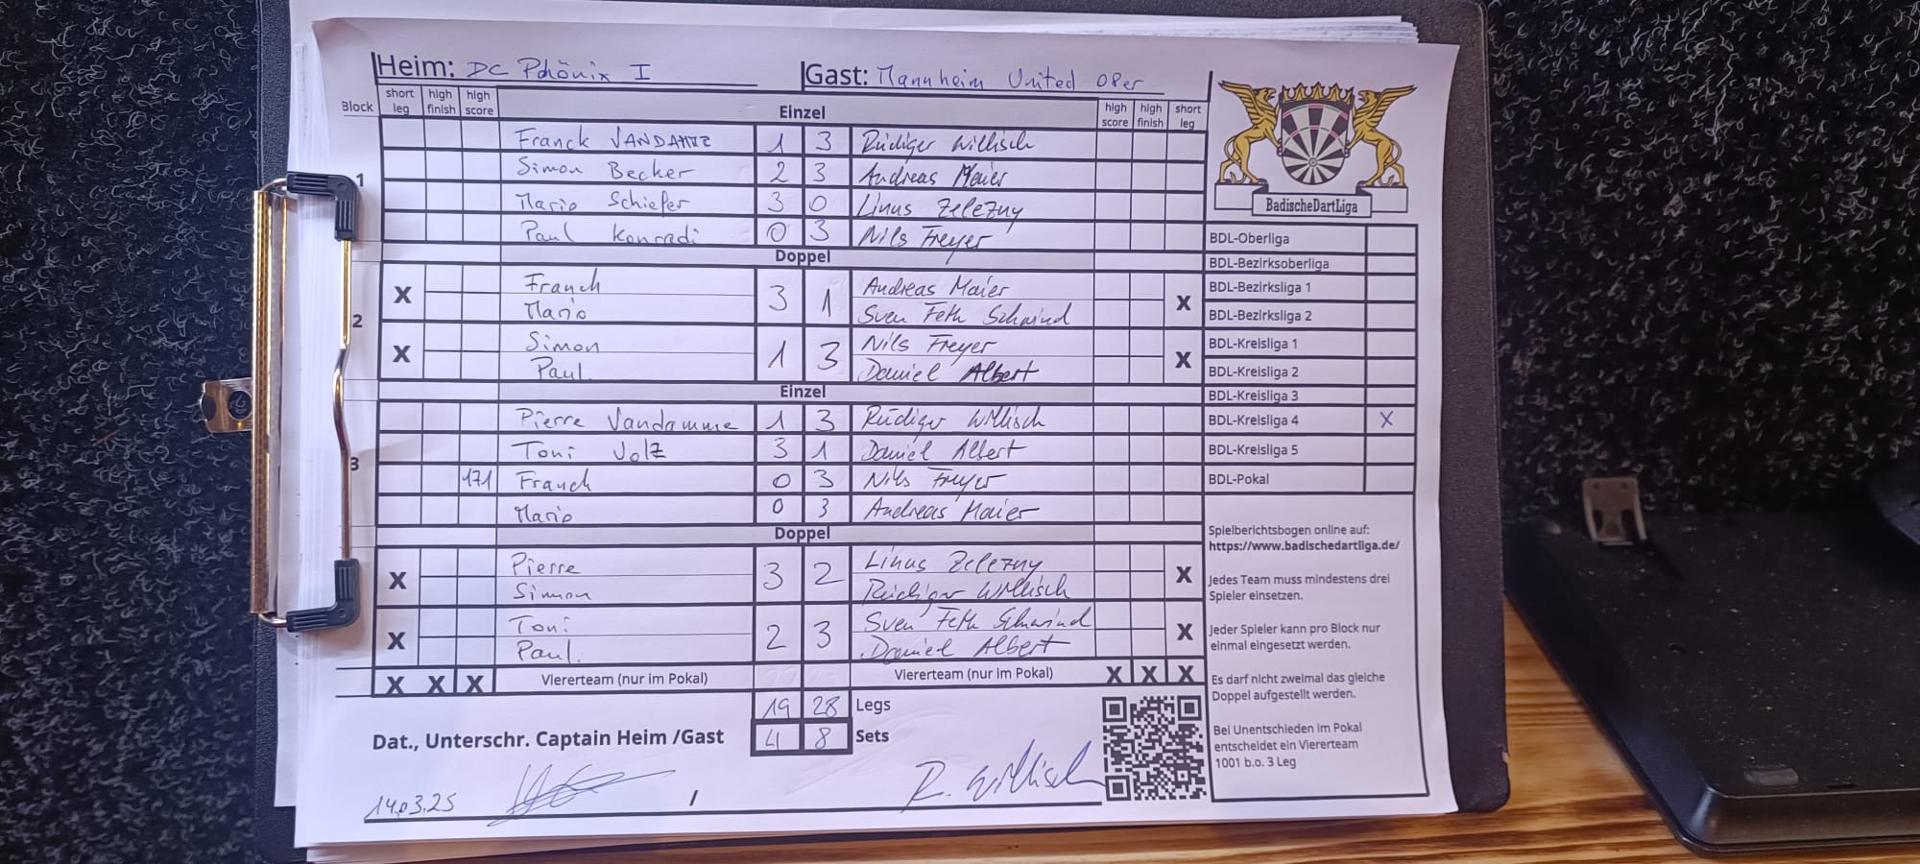 Heim: DC Phönix I Gast: Mannheim United 08er
Block short leg high finish high score Einzel high score high finish short leg
1
Franck VANDAMME 1 3 Rüdiger Willisch
Simon Becker 2 3 Andreas Maier
Mario Schiefer 3 0 Linus Zelezny
Paul Konradi 0 3 Nils Freyer
Doppel
2
X Franck 3 1 Andreas Maier X
Mario Sven Feth Schwind
X Simon 1 3 Nils Freyer X
Paul Daniel Albert
Einzel
3
Pierre Vandamme 1 3 Rüdiger Willisch
Toni Volz 3 1 Daniel Albert
171 Franck 0 3 Nils Freyer
Mario 0 3 Andreas Maier
Doppel
X Pierre 3 2 Linus Zelezny X
Simon Rüdiger Willisch
X Toni 2 3 Sven Feth Schwind X
Paul Daniel Albert
X X X Viererteam (nur im Pokal) Viererteam (nur im Pokal) X X X
19 28 Legs
Dat., Unterschr. Captain Heim /Gast 4 8 Sets
14.03.25 / R. Willisch
BadischeDartLiga
BDL-Oberliga
BDL-Bezirksoberliga
BDL-Bezirksliga 1
BDL-Bezirksliga 2
BDL-Kreisliga 1
BDL-Kreisliga 2
BDL-Kreisliga 3
BDL-Kreisliga 4 X
BDL-Kreisliga 5
BDL-Pokal
Spielberichtsbogen online auf:
https://www.badischedartliga.de/
Jedes Team muss mindestens drei
Spieler einsetzen.
Jeder Spieler kann pro Block nur
einmal eingesetzt werden.
Es darf nicht zweimal das gleiche
Doppel aufgestellt werden.
Bei Unentschieden im Pokal
entscheidet ein Viererteam
1001 b.o. 3 Leg